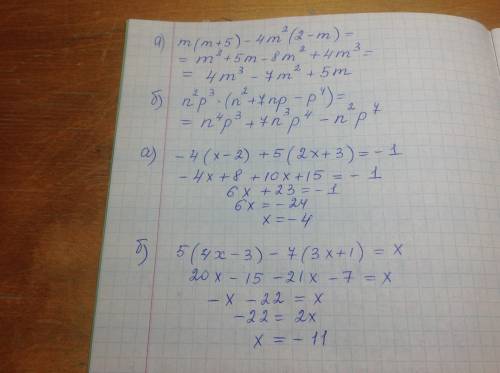 а) m(m+5) - 4m²(2-m) =
= m² + 5m - 8m² + 4m³ =
= 4m³ - 7m² + 5m
б) n²p³ · (n² + 7np - p⁴) =
= n⁴p³ + 7n³p⁴ - n²p⁷
а) -4(x-2) + 5(2x+3) = -1
-4x + 8 + 10x + 15 = -1
6x + 23 = -1
6x = -24
x = -4
б) 5(4x-3) - 7(3x+1) = x
20x - 15 - 21x - 7 = x
-x - 22 = x
-22 = 2x
x = -11